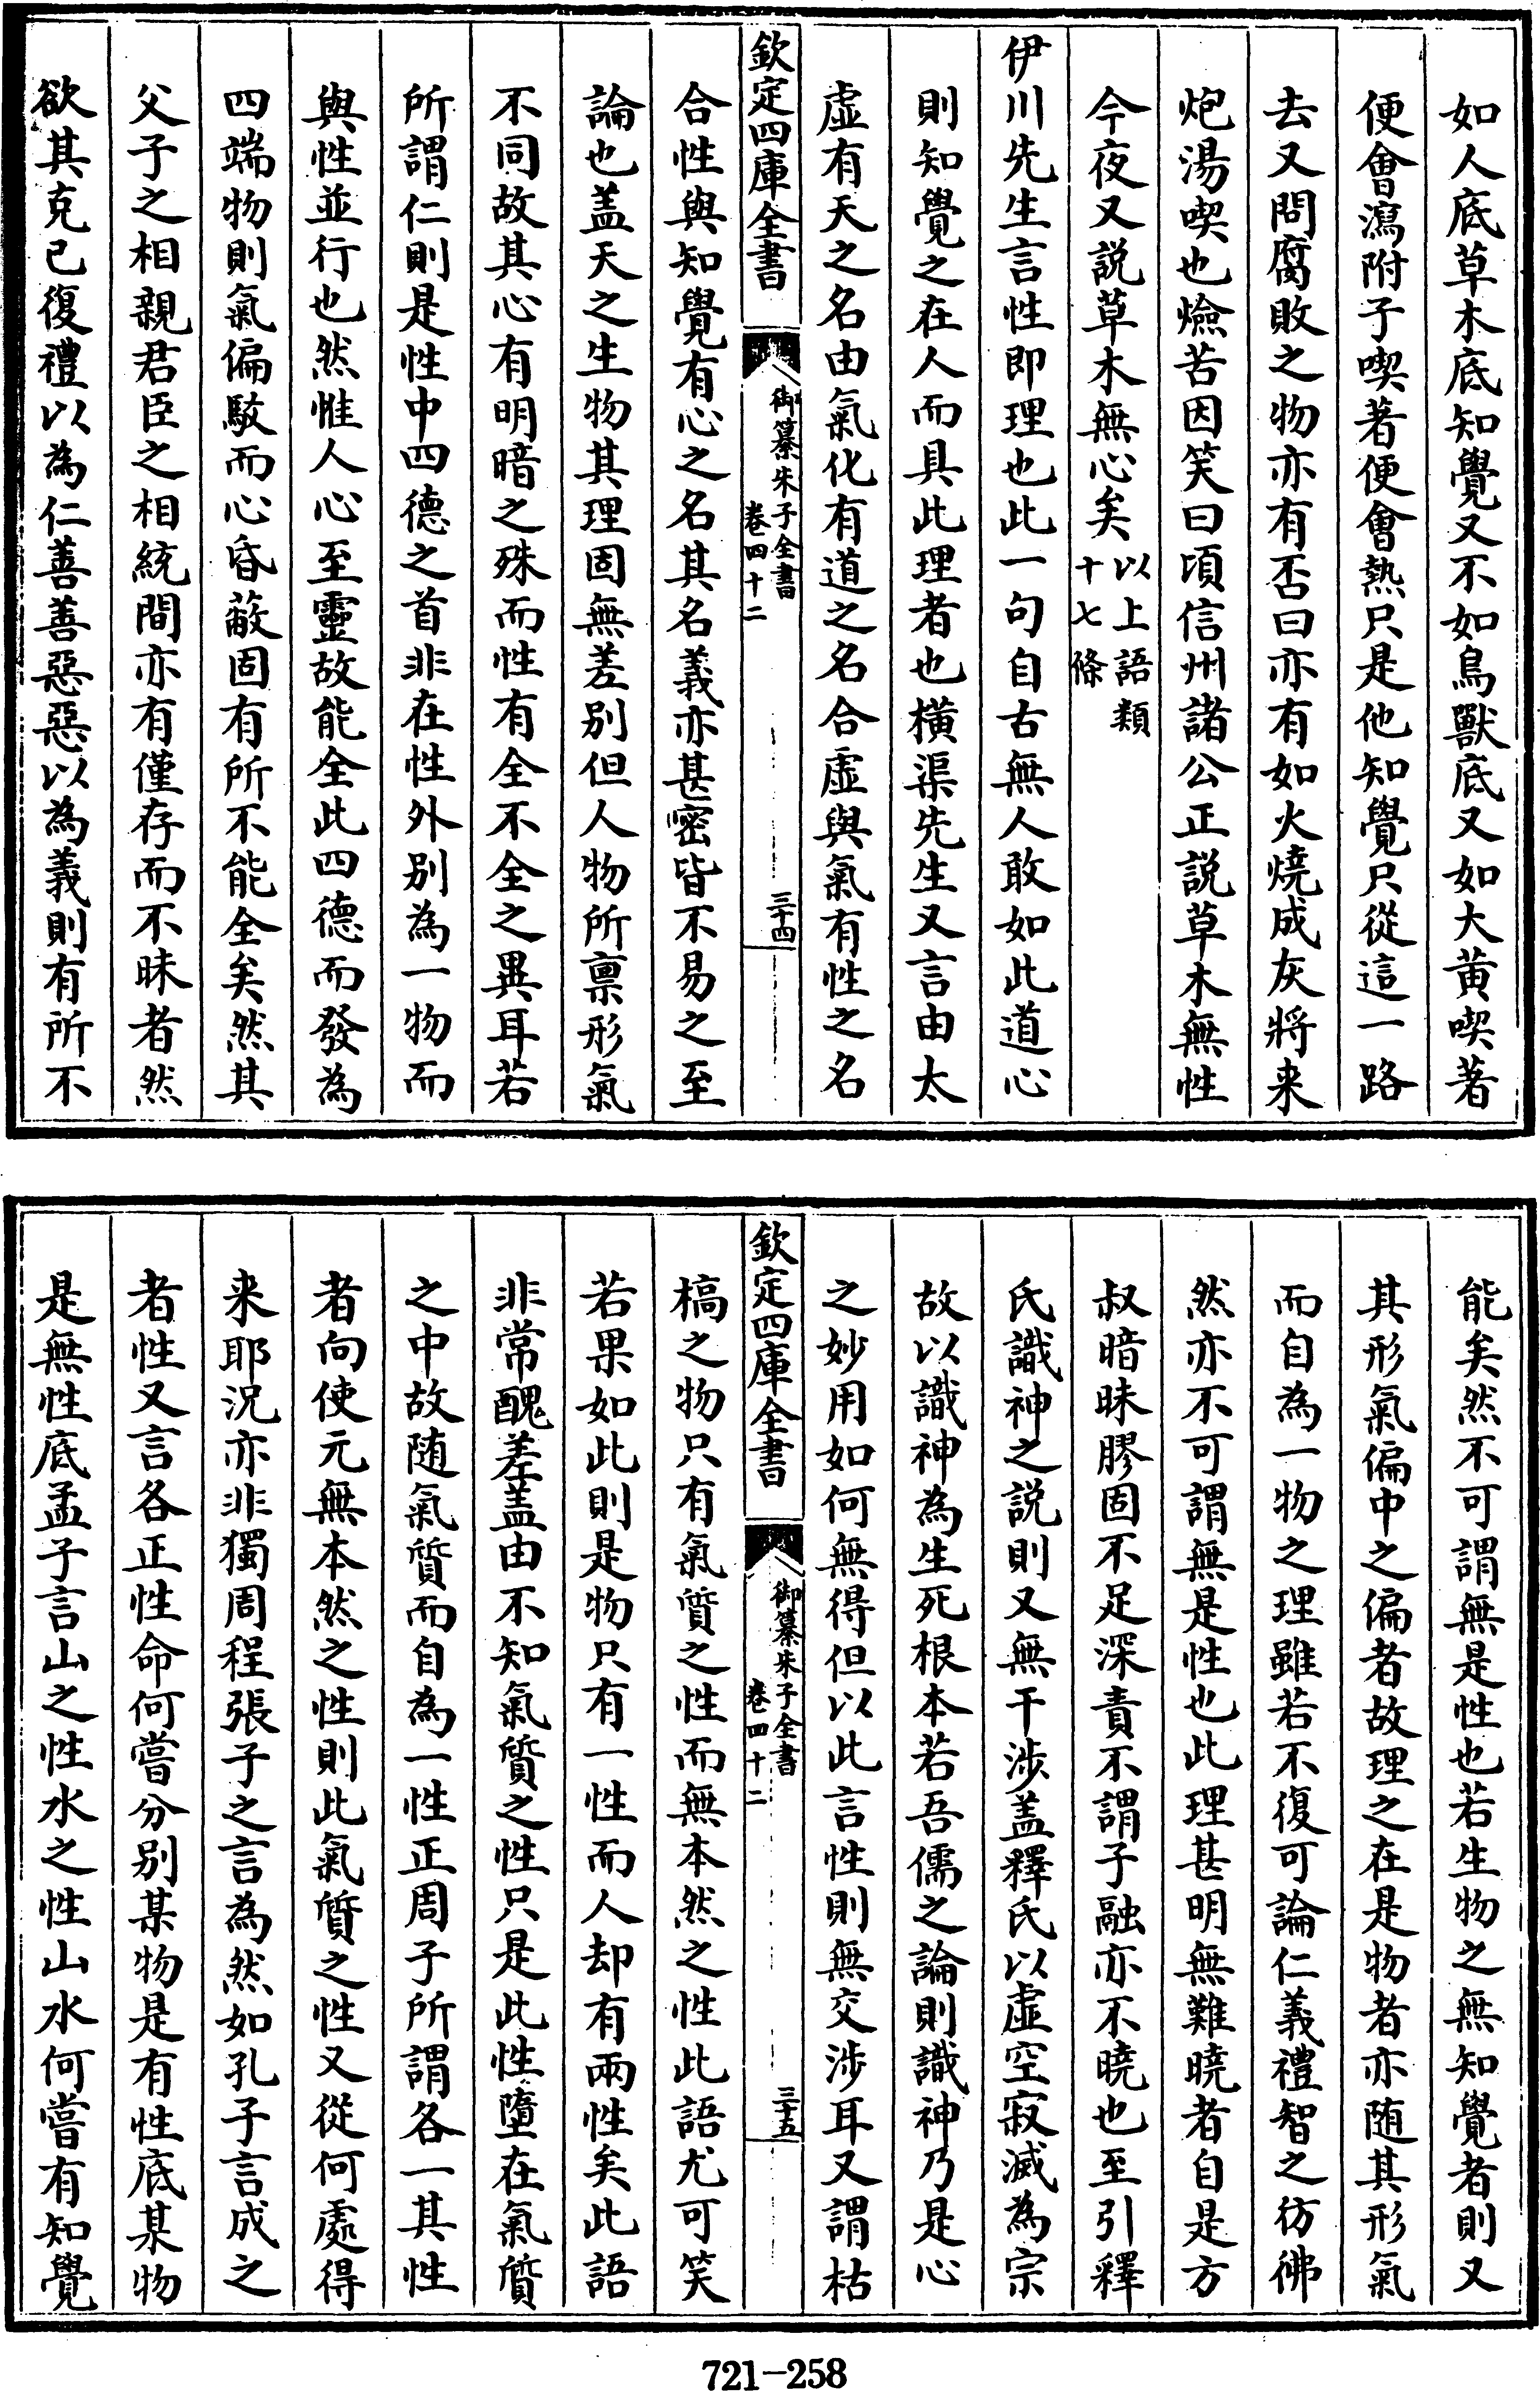 如人底草木底知覺又不如鳥獸底又如大黄喫著
便會瀉附子喫著便會熱只是他知覺只從這一路
去又問腐敗之物亦有否曰亦有如火燒成灰將来
炮湯喫也燄苦因笑曰頃信州諸公正説草木無性
今夜又説草木無心矣以上語類
十七條
伊川先生言性即理也此一句自古無人敢如此道心
則知覺之在人而具此理者也橫渠先生又言由太
虛有天之名由氣化有道之名合虛與氣有性之名
欽定四庫全書
御纂朱子全書
卷四十二
三十四
合性與知覺有心之名其名義亦甚密皆不易之至
論也蓋天之生物其理固無差别但人物所禀形氣
不同故其心有明暗之殊而性有全不全之異耳若
所謂仁則是性中四德之首非在性外别為一物而
與性並行也然惟人心至靈故能全此四德而發為
四端物則氣偏駁而心昏蔽固有所不能全矣然其
父子之相親君臣之相統間亦有僅存而不昧者然
欲其克己復禮以為仁善善惡惡以為義則有所不
能矣然不可謂無是性也若生物之無知覺者則又
其形氣偏中之偏者故理之在是物者亦随其形氣
而自為一物之理雖若不復可論仁義禮智之彷彿
然亦不可謂無是性也此理甚明無難曉者自是方
叔暗昧膠固不足深責不謂子融亦不曉也至引釋
氏識神之説則又無干涉蓋釋氏以虛空寂滅為宗
故以識神為生死根本若吾儒之論則識神乃是心
之妙用如何無得但以此言性則無交涉耳又謂枯
欽定四庫全書
御纂朱子全書
卷四十二
三十五
槁之物只有氣質之性而無本然之性此語尤可笑
若果如此則是物只有一性而人却有兩性矣此語
非常醜差蓋由不知氣質之性只是此性墮在氣質
之中故随氣質而自為一性正周子所謂各一其性
者向使元無本然之性則此氣質之性又從何處得
来耶況亦非獨周程張子之言為然如孔子言成之
者性又言各正性命何嘗分别某物是有性底某物
是無性底孟子言山之性水之性山水何嘗有知覺
721-258